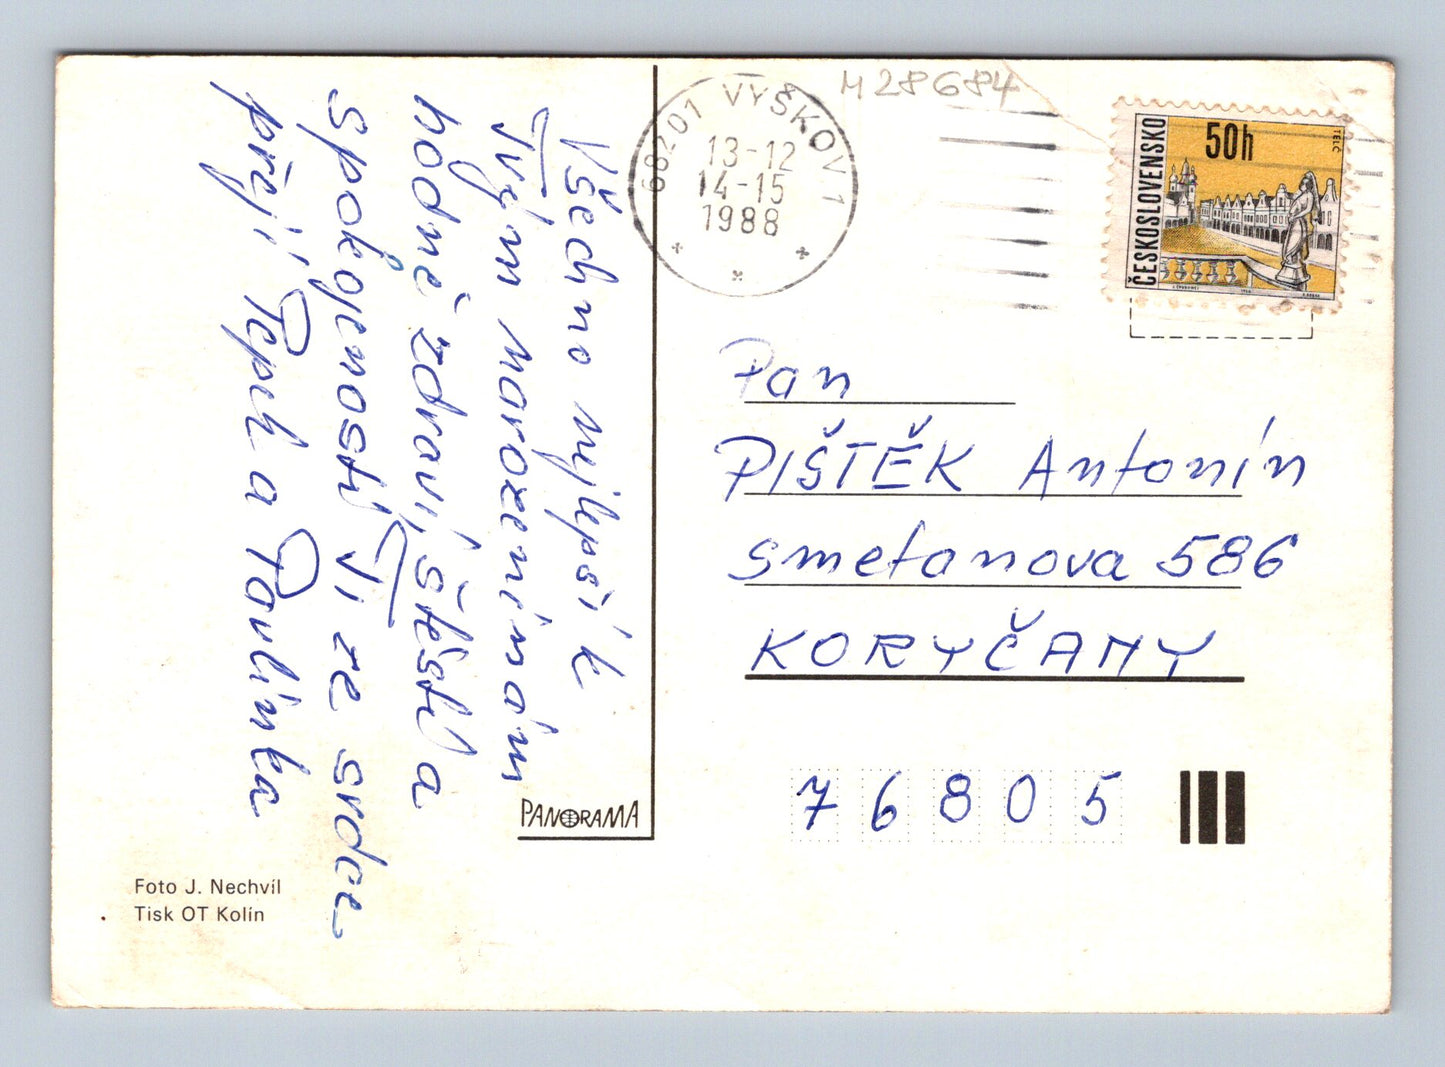 Všechno nejlepší k
Tvým narozeninám
hodně zdraví, štěstí a
Spokojenosti Ti ze srdce
přejí Pepek a Pavlínka
PANORAMA
Foto J. Nechvíl
Tisk OT Kolín
68201 VYŠKOV 1
13-12
14-15
1988
M 28684
ČESKOSLOVENSKO
50h
TELČ
Pan
PIŠTĚK Antonín
smetanova 586
KORYČANY
76805